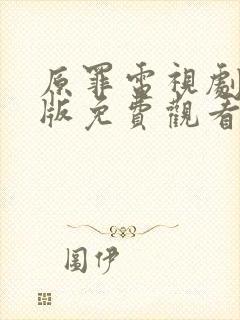 原罪電視劇
版免費觀看
圍伊